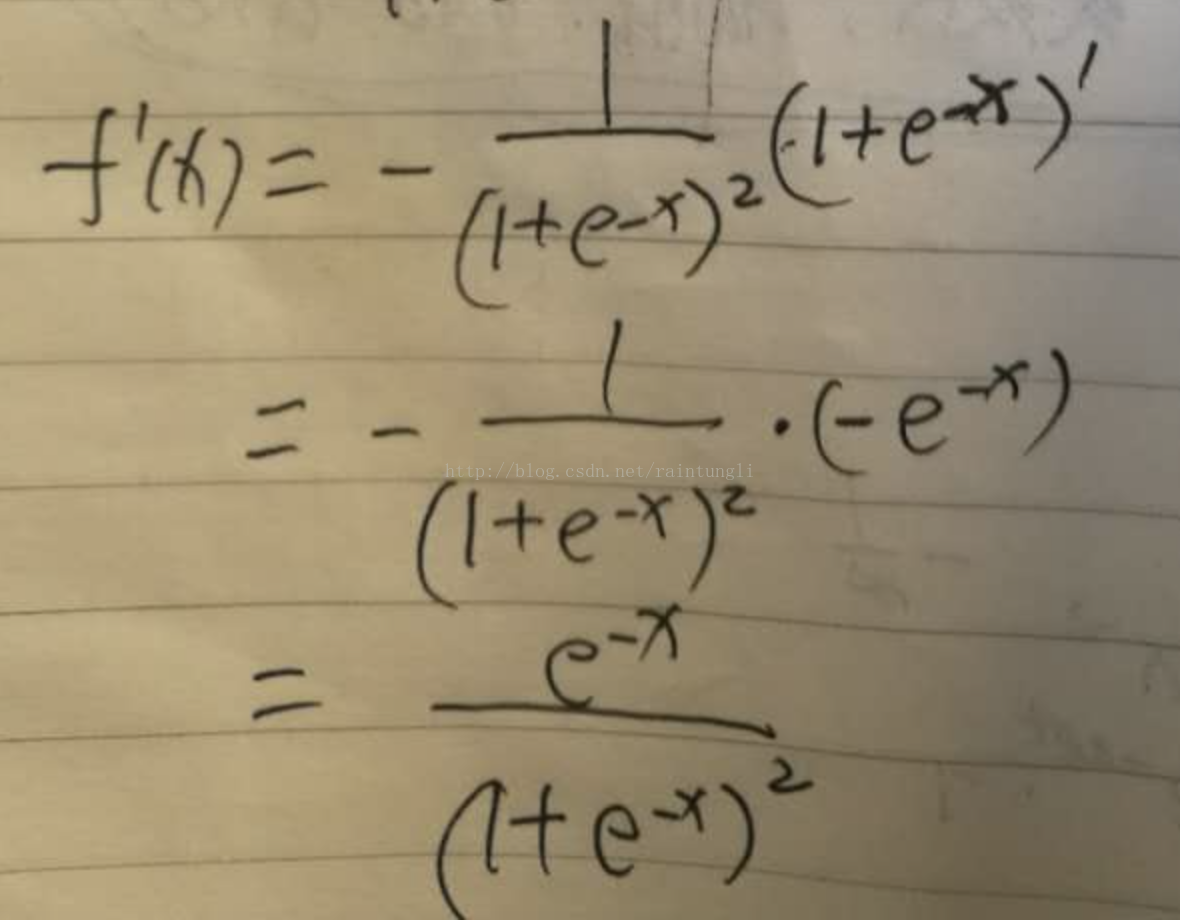 f'(x) = - \frac{1}{(1+e^{-x})^2} (1+e^{-x})'
= - \frac{1}{(1+e^{-x})^2} \cdot (-e^{-x})
http://blog.csdn.net/raintungli
= \frac{e^{-x}}{(1+e^{-x})^2}